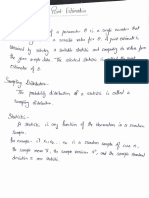 Point Estimation
of a parameter θ is a single number that
a sensible value for θ. A point estimate is
obtained by selecting a suitable statistic and computing its value from
the given sample data. The selected statistic is called the point
estimator of θ.
Sampling Distribution-
The probability distribution of a statistic is called a
sampling distribution.
Statistic-
A statistic is any function of the observations in a random
sample.
For example, if X₁, X₂, is a random sample of size n,
the sample mean X̄, the sample variance S², and the sample standard
deviation S are statistic.